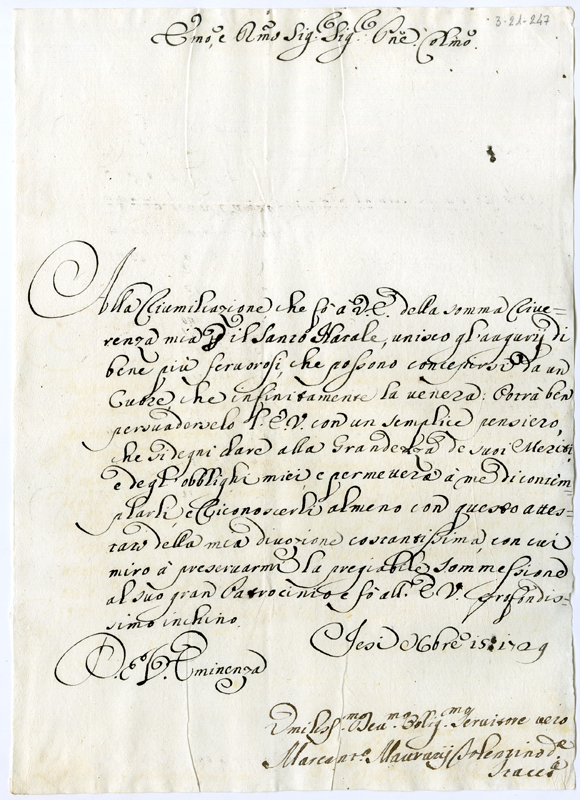 3-21-247
Emo, e Rmo Sig.r Sig.r Pne. Colmo.
Alla Riumiliazione che fò à V.E. della somma Rive=
renza mia p il Santo Natale, unisco gl'augurij di
bene più fervorosi, che possono concepirsi da un
Cuore che infinitamente la venera: Potrà ben
persuaderselo l'E.V. con un semplice pensiero,
che si degni dare alla Grandezza de suoi Meriti,
e degl'obblighi miei e permeverà à me di contem=
plarli e Riconoscerli almeno con questo attes=
tato della mia divozione costantissima, con cui
miro à preservarmi la pregiabile sommessione
al suo gran Patrocinio e fò all'E.V. profondis=
simo inchino.
Jesi Xbre 15: 1729
D. V. Eminenza
Umiliss.mo Dev.mo Oblig.mo Servitore vero
Marcant.o Maurizij